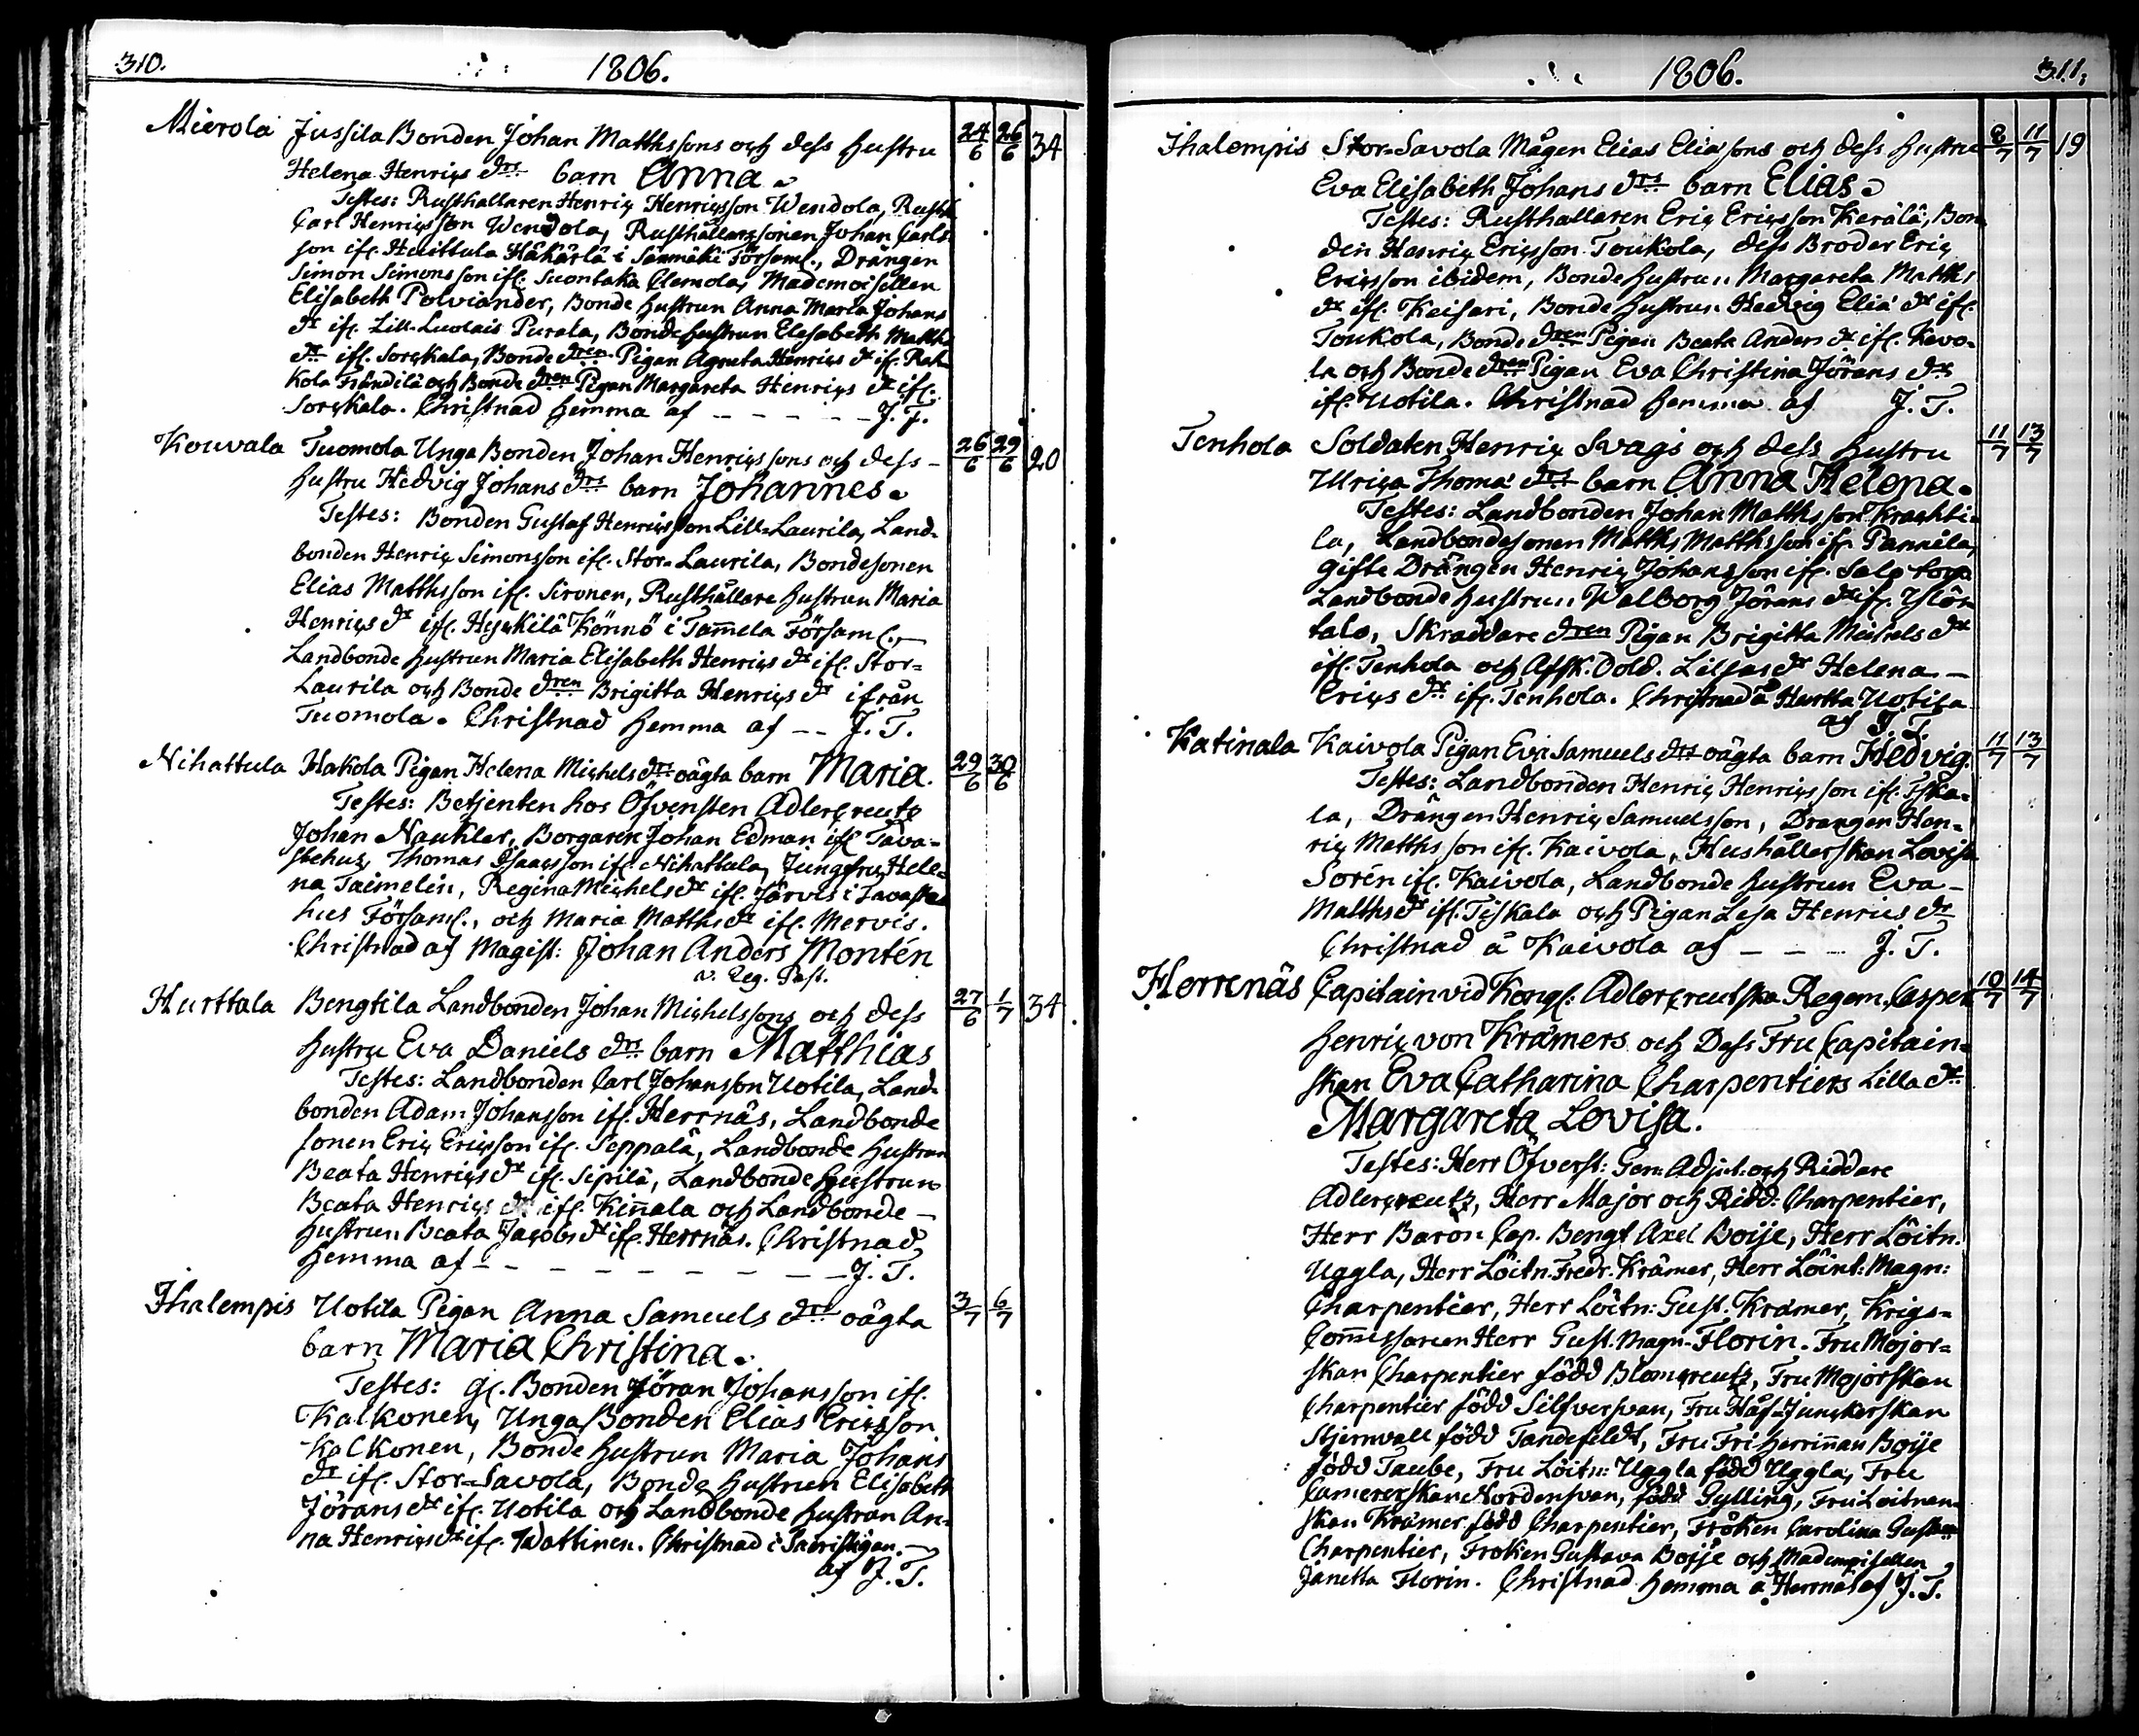 310. 1806.
Mierola Jussila Bonden Johan Matthssons och dess hustru 24/6 26/6 34
Helena Henrics drs barn Anna.
Testes: Rusthållaren Henric Henricsson Wendola, Rusth
Carl Henricsson Wendola, Rusthållaresonen Johan Carls
son ifl. Heisttula Häkärlä i Församl., Drängen
Simon Simonsson ifl. Suontaka Clemola, Mademoisellen
Elisabeth Polviander, Bonde hustrun Anna Maria Johans
dr ifl. Lill-Luolais Purala, Bonde hustrun Elisabeth Matths
dr ifl. Sorckala, Bonde dren Pigan Agneta Henrics dr ifl. Rah
kola Frändilä och Bonde dren Pigan Margareta Henrics dr ifl.
Sorckala. Christnad hemma af - - - - - - J. T.
Kouvala Tuomola Unga Bonden Johan Henricssons och dess 26/6 29/6 20
hustru Hedvig Johans drs barn Johannes.
Testes: Bonden Gustaf Henricsson Lill-Laurila, Land-
bonden Henric Simonsson ifl. Stor-Laurila, Bondesonen
Elias Matthsson ifl. Sironen, Rusthållare hustrun Maria
Henrics dr ifl. Hyckilä Könnö i Tam̄ela Församl.,
Landbonde hustrun Maria Elisabeth Henrics dr ifl. Stor=
Laurila och Bonde dren Brigitta Henrics dr ifrån
Tuomola. Christnad hemma af - - J. T.
Nihattula Hakola Pigan Helena Michels drs oägta barn Maria. 29/6 30/6
Testes: Betjenten hos Öfversten Adlercreutz
Johan Naukler, Borgaren Johan Edman ifl Tava-
stehus, Thomas Isaacsson ifl. Nihattula, Jungfru Hele-
na Taimelin, Regina Michels dr ifl. Järvis i Tavaste
hus Församl., och Maria Matths dr ifl. Mervis.
Christnad af Magist: Johan Anders Montén
v. Reg. Past.
Hurttala Bengtila Landbonden Johan Michelssons och dess 27/6 1/7 34
hustru Eva Daniels drs barn Matthias
Testes: Landbonden Carl Johansson Uotila, Land-
bonden Adam Johansson ifl. Herrnäs, Landbonde
sonen Eric Ericsson ifl. Seppälä, Landbonde hustrun
Beata Henrics dr ifl. Sipilä, Landbonde hustrun
Beata Henrics dr ifl. Kin̄ala och Landbonde -
hustrun Beata Jacobs dr ifl. Herrnäs. Christnad
hemma af - - - - - - - - J. T.
Ihalempis Uotila Pigan Anna Samuels drs oägta 3/7 6/7
barn Maria Christina.
Testes: gl. Bonden Jöran Johansson ifl.
Kalkonen, Unga Bonden Elias Ericsson
Kalkonen, Bonde hustrun Maria Johans
dr ifl. Stor=Savola, Bonde hustrun Elisabeth
Jörans dr ifl. Uotila och Landbonde hustrun An-
na Henrics dr ifl. Wattinen. Christnad i Sacristigan.
af J. T.
1806. 311.
Ihalempis Stor=Savola Mågen Elias Eliassons och dess hustru 8/7 11/7 19
Eva Elisabeth Johans drs barn Elias.
Testes: Rusthållaren Eric Ericsson Kerälä, Bon
den Henric Ericsson Toukola, dess Broder Eric
Ericsson ibidem, Bonde hustrun Margareta Matths
dr ifl. Keisari, Bonde hustrun Hedvig Eliæ dr ifl.
Toukola, Bonde dren Pigan Beata Anders dr ifl. Kavo-
la och Bonde dren Pigan Eva Christina Jörans dr
ifl. Uotila. Christnad hemma af J. T.
Tenhola Soldaten Henric Svags och dess hustru 11/7 13/7
Ulrica Thomæ drs barn Anna Helena.
Testes: Landbonden Johan Matthsson
la, Landbondesonen Matths Matthsson ifl. Pannila,
gifte Drängen Henric Johansson ifl.
Landbonde hustrun Valborg Jörans dr ifl.
talo, Skräddare dren Pigan Brigitta Michels dr
ifl. Tenhola och Afsk. Sold. Helena -
Erics dr ifl. Tenhola. Christnad å Hurtta Uotila
af J. T.
Katinala Kaivola Pigan Eva Samuels drs oägta barn Hedvig. 11/7 13/7
Testes: Landbonden Henric Henricsson ifl.
la, Drängen Henric Samuelsson, Drängen Hen-
ric Matthsson ifl. Kaivola, Hushållerskan Lovisa
Sorén ifl. Kaivola, Landbonde hustrun Eva -
Matths dr ifl. Tiskala och Pigan Lisa Henrics dr
Christnad å Kaivola af - - - J. T.
Herrenäs Capitain vid Kongl. Adlercreutska Regem. Casper 10/7 14/7
Henric von Kræmers och Dess Fru Capitain-
skan Eva Catharina Charpentiers Lilla dr
Margareta Lovisa.
Testes: Herr Öfverst: Gen: Adjut. och Riddare
Adlercreutz, Herr Major och Ridd: Charpentier,
Herr Baron Cap. Bengt Axel Boije, Herr Löitn.
Uggla, Herr Löitn. Fredr. Kræmer, Herr Löint: Magn:
Charpentier, Herr Löitn: Gust. Kræmer, Krigs=
Com̄issarien Herr Gust. Magn. Florin. Fru Major=
skan Charpentier född Blomcreutz, Fru Majorskan
Charpentier född Silfversvan, Fru Håf-Junckerskan
Stjernvall född Tandefeldt, Fru Friherrin̄an Boije
född Taube, Fru Löitn: Uggla född Uggla, Fru
Camererskan Nordensvan, född Gylling, Fru Löitnan-
skan Kræmer född Charpentier, Fröken Carolina Gustava
Charpentier, Fröken Gustava Boije och Mademoisellen
Janetta Florin. Christnad hemma å Herrnäs af J. T.